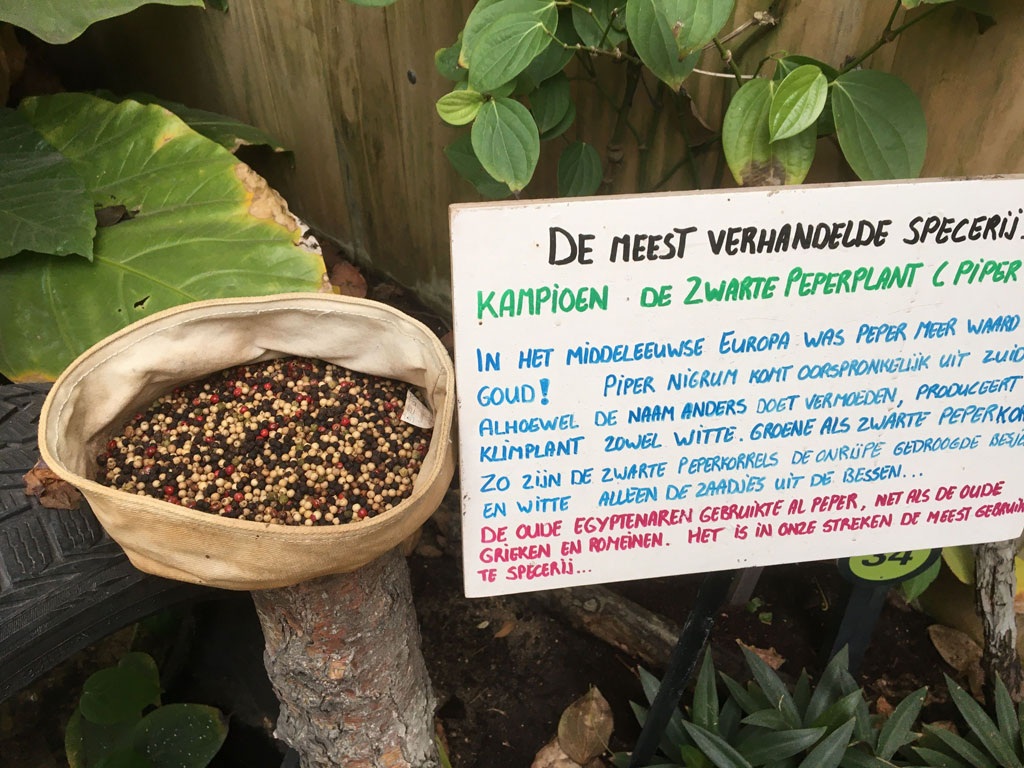 DE MEEST VERHANDELDE SPECERIJ
KAMPIOEN DE ZWARTE PEPERPLANT (PIPER
IN HET MIDDELEEUWSE EUROPA WAS PEPER MEER WAARD
GOUD! PIPER NIGRUM KOMT OORSPRONKELIJK UIT ZUID
ALHOEWEL DE NAAM ANDERS DOET VERMOEDEN, PRODUCEERT
KLIMPLANT ZOWEL WITTE. GROENE ALS ZWARTE PEPERKOR
ZO ZIJN DE ZWARTE PEPERKORRELS DE ONRIJPE GEDROOGDE
EN WITTE ALLEEN DE ZAADJES UIT DE BESSEN...
DE OUDE EGYPTENAREN GEBRUIKTE AL PEPER, NET ALS DE OUDE
GRIEKEN EN ROMEINEN. HET IS IN ONZE STREKEN DE MEEST GEBRUIK
TE SPECERIJ...
34